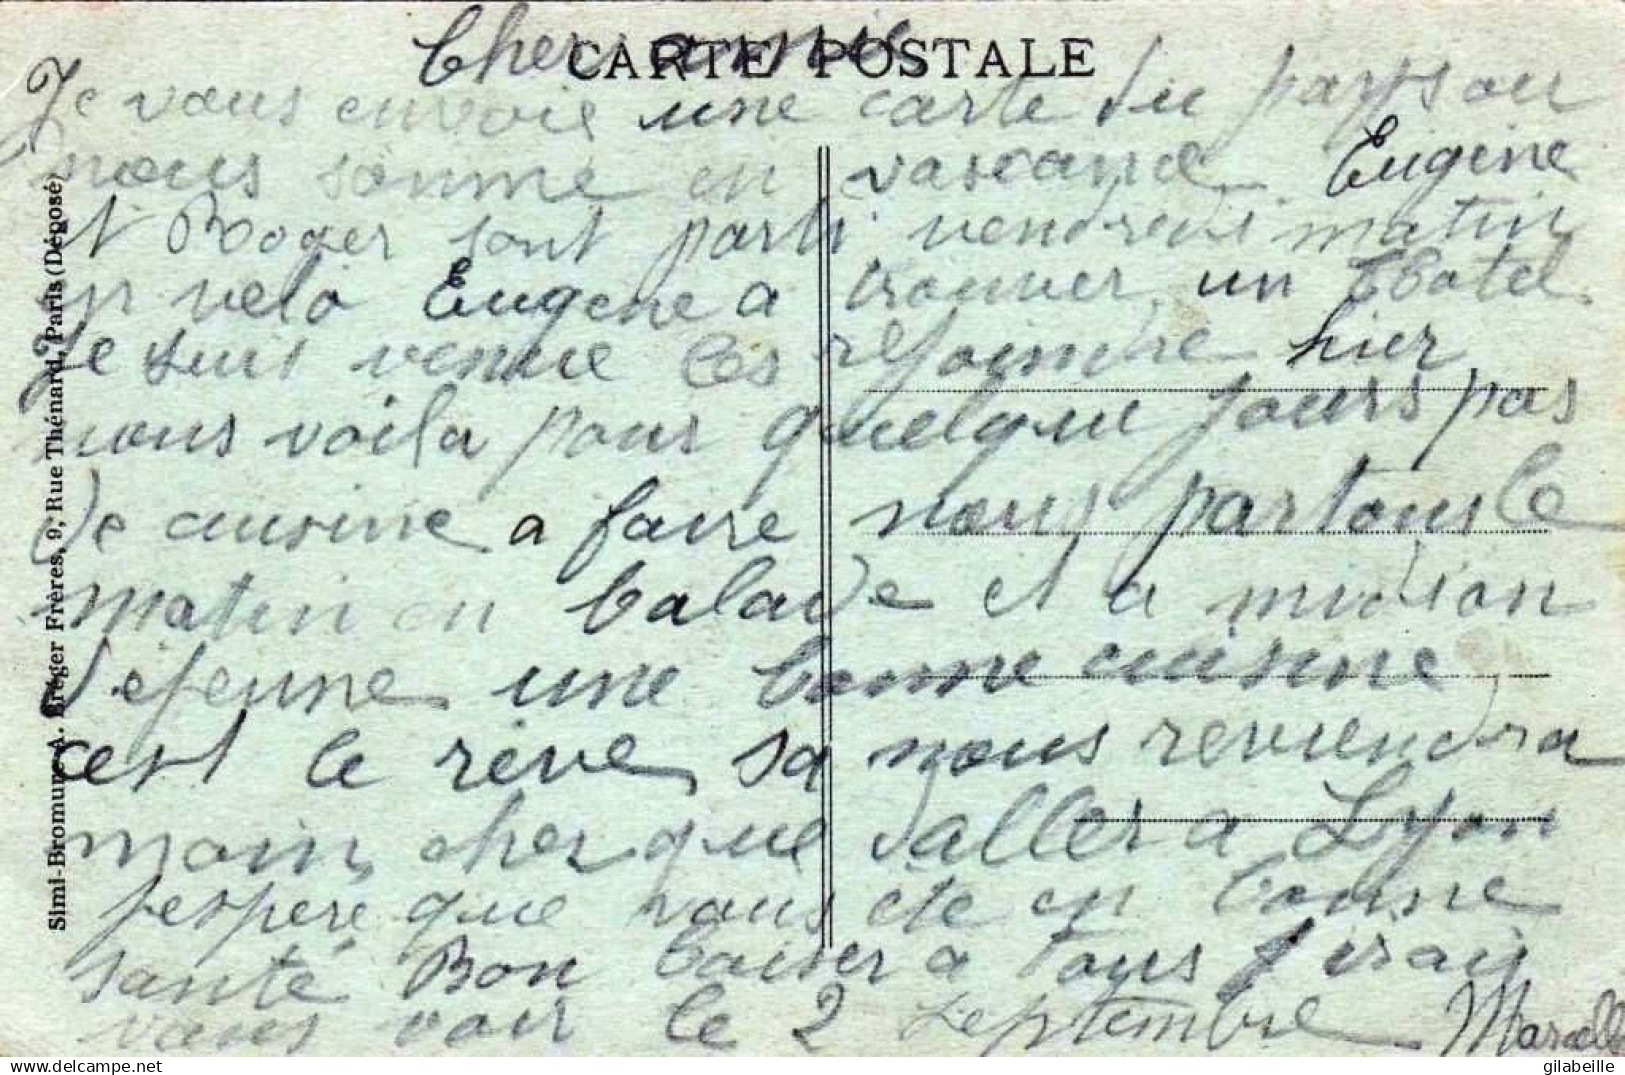 CARTE POSTALE
Cher amie
Je vous envoie une carte du pays ou
nous somme en vacance Eugène
et Roger sont parti vendredi matin
en velo Eugene a trouver un Hotel
Je suis venue les rejoindre hier
nous voila pour quelque jours pas
de cuisine a faire nous partons le
matin en balade et a midi on
dejeune une bonne cuisine
cest le rève sa nous reviendra
moin cher que daller a Lyon
jespère que vous ète en bonne
santé Bon baiser a tous jirais
vous voir le 2 septembre Marcelle
Simi-Bromure A. Bréger Frères, 9, Rue Thénard, Paris (Déposé)
delcampe.net
gilabeille